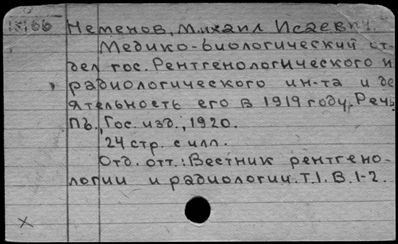 Неменов, Михаил Исаевич.
Медико-биологический от-
дел гос. Рентгенологического и
радиологического ин-та и де
ятельность его в 1919 году, Речь
Пб., Гос. изд., 1920.
24 стр. с илл.
Отд. отт.: Вестник рентгено-
логии и радиологии. Т.I. В.1-2.